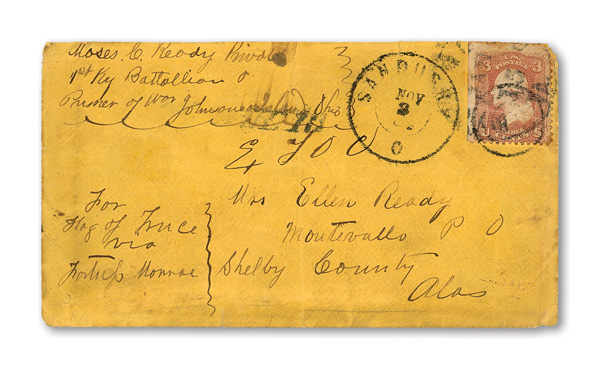 Moses. C. Ready Private
1st Ky Battallion
Prisner of War Johnsons Island Ohio
SANDUSKY
NOV
3
O
3
3
U.S. POSTAGE
For
Flag of Truce
via
Fortress Monroe
Mrs Ellen Ready
Montevallo P O
Shelby County
Alas